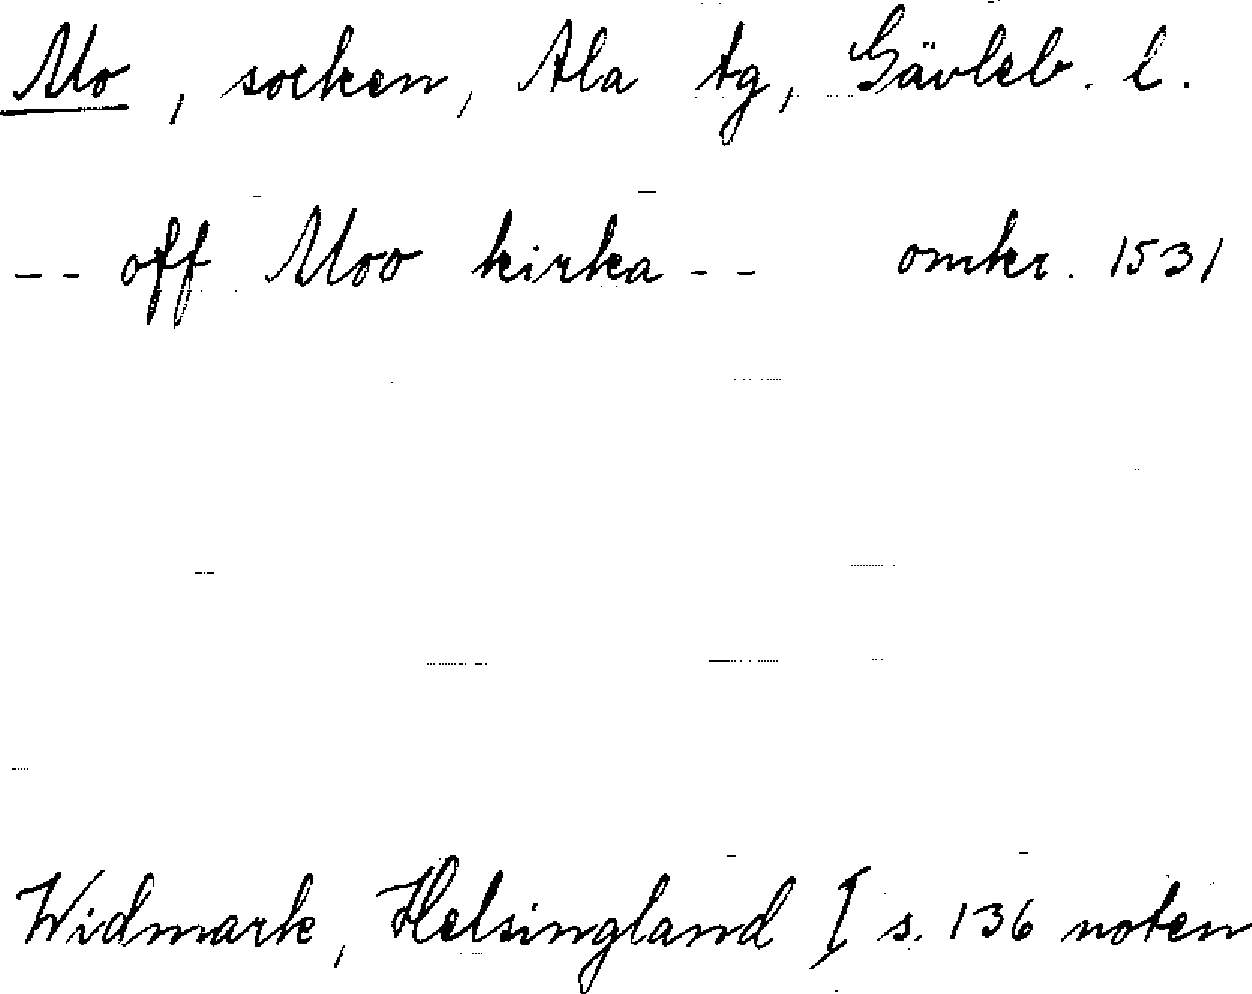 Mo, socken, Ala tg, Gävleb. l.
-- off Moo kirka -- omkr. 1531
Widmark, Helsingland I s. 136 noten